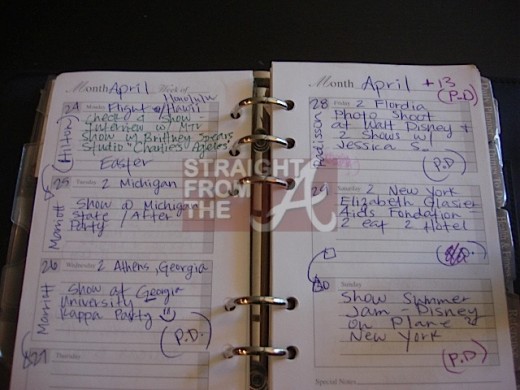 Month April Week of
Honolulu
24 Monday Flight w/ Hawii
Check & show -
Interview w/ MTV
Show w/ Brittney Spears
Studio "Charlies Angeles"
(Hilton)
Easter
25 Tuesday 2 Michigan
Show @ Michigan
State / After
Party
Marriott
26 Wednesday 2 Athens, Georgia
Show at Georgia
University
Kappa Party
Marriott
(P.D.)
27 Thursday
Month April + 13
(P.D)
28 Friday 2 Flordia
Photo Shoot
at Walt Disney &
2 Shows w/
Jessica S.
Radisson
(P.D)
29 Saturday 2 New York
Elizabeth Glasier
Aids Fondation -
2 eat 2 Hotel
30 Sunday
Show Summer
Jam - Disney
on Plane
New York
(P.D)
Special Notes
STRAIGHT
FROM
THE A